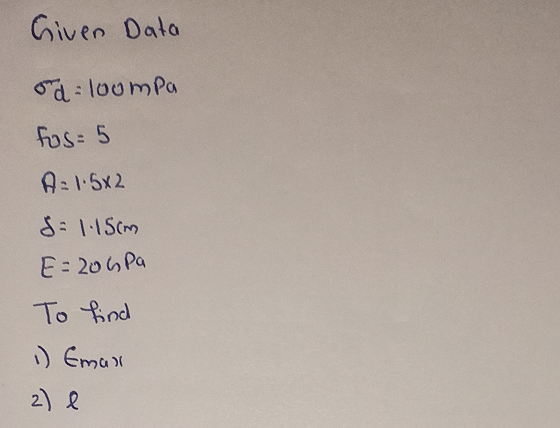 Given Data
σd = 100mPa
fos = 5
A = 1.5x2
δ = 1.15cm
E = 20GPa
To find
1) Emax
2) l